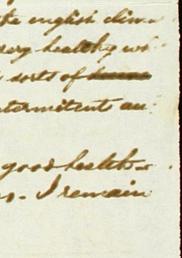 the english clim
very healthy wh
sorts of
intermitents au
good health
I remain